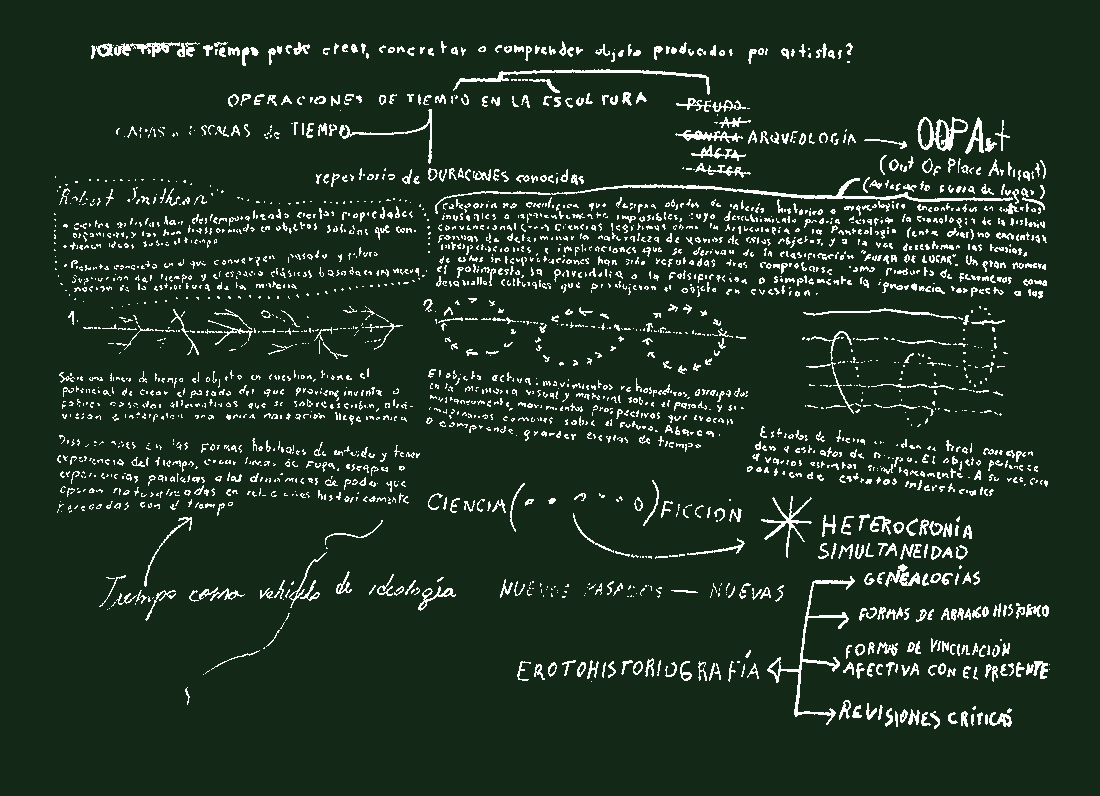 ¿Qué tipo de tiempo puede crear, concretar o comprender objeto producidos por artistas?
OPERACIONES DE TIEMPO EN LA ESCULTURA
CAPAS o ESCALAS de TIEMPO
PSEUDO
AN
CONTRA
META
ALTER
ARQUEOLOGÍA
OOPArt
(Out Of Place Artifact)
(Artefacto fuera de lugar)
repertorio de DURACIONES conocidas
Robert Smithson
• ciertos artistas han destemporalizado ciertas propiedades
orgánicas, y las han trasformado en objetos sólidos que con-
tienen ideas sobre el tiempo
• Presente concreto en el que convergen pasado y futuro
Supresión del tiempo y el espacio clásicos basada en
nación es la estructura de la materia
Categoría no científica que designa objetos de interés histórico o arqueológico encontrados en contextos
inusuales o aparentemente imposibles, cuyo descubrimiento podría desafiar la cronología de la historia
convencional. Ciencias legítimas como la Arqueología o la Paleontología (entre otras) no encuentran
formas de determinar la naturaleza de varios de estos objetos, y a la vez desestiman las teorías
interpretaciones e implicaciones que se derivan de la clasificación "FUERA DE LUGAR". Un gran número
de estas interpretaciones han sido refutadas tras comprobarse como producto de fenómenos como
el palimpsesto, la pareidolia o la falsificación o simplemente la ignorancia respecto a los
desarrollos culturales que produjeron el objeto en cuestión.
1.
2.
Sobre una línea de tiempo el objeto en cuestión, tiene el
potencial de crear el pasado del que proviene, inventa o
fabrica pasados alternativos que se sobreescriben, atra-
viesan e interpelan una única narración hegemónica
Disrupciones en las formas habituales de entender y tener
experiencia del tiempo, crear líneas de fuga, escapes o
experiencias paralelas a las dinámicas de poder que
operan naturalizadas en relaciones históricamente
agregadas con el tiempo
El objeto activa: movimientos retrospectivos, arraigados
en la memoria visual y material sobre el pasado. y si-
multáneamente, movimientos prospectivos que evocan
imaginarios comunes sobre el futuro. Abarca
o comprende, grandes escalas de tiempo
Estratos de tierra en orden vertical correspon
den a estratos de tiempo. El objeto pertenece
a varios estratos simultáneamente. A su vez, crea
o atiende estratos intersticiales
CIENCIA ( ) FICCIÓN
HETEROCRONÍA
SIMULTANEIDAD
Tiempo como vehículo de ideología
NUEVOS PASADOS — NUEVAS
GENEALOGÍAS
FORMAS DE ARRAIGO HISTÓRICO
FORMAS DE VINCULACIÓN
AFECTIVA CON EL PRESENTE
REVISIONES CRÍTICAS
EROTOHISTORIOGRAFÍA